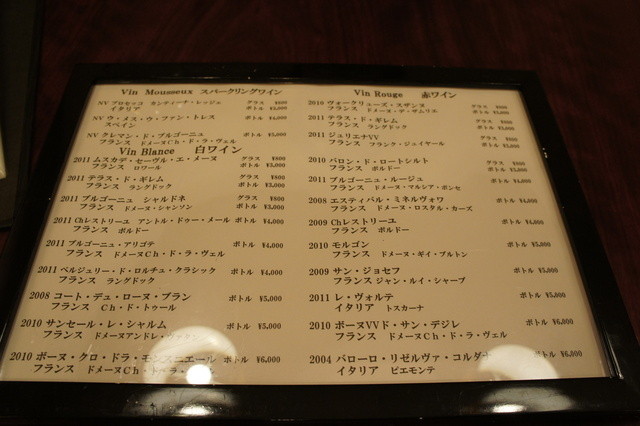 Vin Mousseux スパークリングワイン
NV プロセッコ カンティーナ・レッジェ グラス ¥800
イタリア ボトル ¥3,000
NV ウ・メス・ウ・ファン・トレス ボトル ¥4,000
スペイン
NV クレマン・ド・ブルゴーニュ ボトル ¥5,000
フランス ドメーヌCh・ド・ラ・ヴェル
Vin Blance 白ワイン
2011 ムスカデ・セーヴル・エ・メーヌ グラス ¥800
フランス ロワール ボトル ¥3,000
2011 テラス・ド・ギレム グラス ¥800
フランス ラングドック ボトル ¥3,000
2011 ブルゴーニュ シャルドネ グラス ¥800
フランス ドメーヌ・シャンソン ボトル ¥3,000
2011 Chレストリーユ アントル・ドゥー・メール ボトル ¥4,000
フランス ボルドー
2011 ブルゴーニュ・アリゴテ ボトル ¥4,000
フランス ドメーヌCh・ド・ラ・ヴェル
2011 ベルジュリー・ド・ロルチュ・クラシック ボトル ¥4,000
フランス ラングドック
2008 コート・デュ・ローヌ・ブラン ボトル ¥5,000
フランス Ch・ド・トゥール
2010 サンセール・レ・シャルム ボトル ¥5,000
フランス ドメーヌアンドレ・
2010 ボーヌ・クロ・ドラ・モンスニエール ボトル ¥6,000
フランス ドメーヌCh・ド・ラ・ヴェル
Vin Rouge 赤ワイン
2010 ヴォークリューズ・スザンヌ グラス ¥800
フランス ドメーヌ・デ・ザムリエ ボトル ¥3,000
2011 テラス・ド・ギレム グラス ¥800
フランス ラングドック ボトル ¥3,000
2011 ジュリエナVV グラス ¥800
フランス フランク・ジュイヤール ボトル ¥3,000
2010 バロン・ド・ロートシルト グラス ¥800
フランス ボルドー ボトル ¥3,000
2011 ブルゴーニュ・ルージュ グラス ¥800
フランス ドメーヌ・マルシア・ボンセ ボトル ¥3,000
2008 エスティバル・ミネルヴォワ ボトル ¥4,000
フランス ドメーヌ・ロスタル・カーズ
2009 Chレストリーユ ボトル ¥4,000
フランス ボルドー
2010 モルゴン ボトル ¥5,000
フランス ドメーヌ・ギイ・ブルトン
2009 サン・ジョセフ ボトル ¥5,000
フランス ジャン・ルイ・シャーブ
2011 レ・ヴォルテ ボトル ¥5,000
イタリア トスカーナ
2010 ボーヌVVド・サン・デジレ ボトル ¥6,000
フランス ドメーヌCh・ド・ラ・ヴェル
2004 バローロ・リゼルヴァ・コルダ ボトル ¥6,000
イタリア ピエモンテ